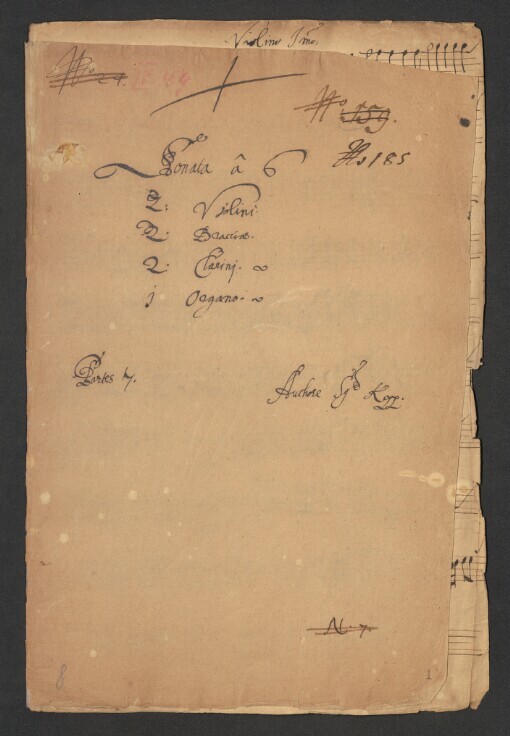 Violino Imo.
No 24. IV 44
No 159.
No 185
Sonata â 6
2: Violini.
2: Braccie.
2. Clarini. ∞
1 Organo. ∞
Partes 7.
Authore Kopp.
N. 7.
8 1